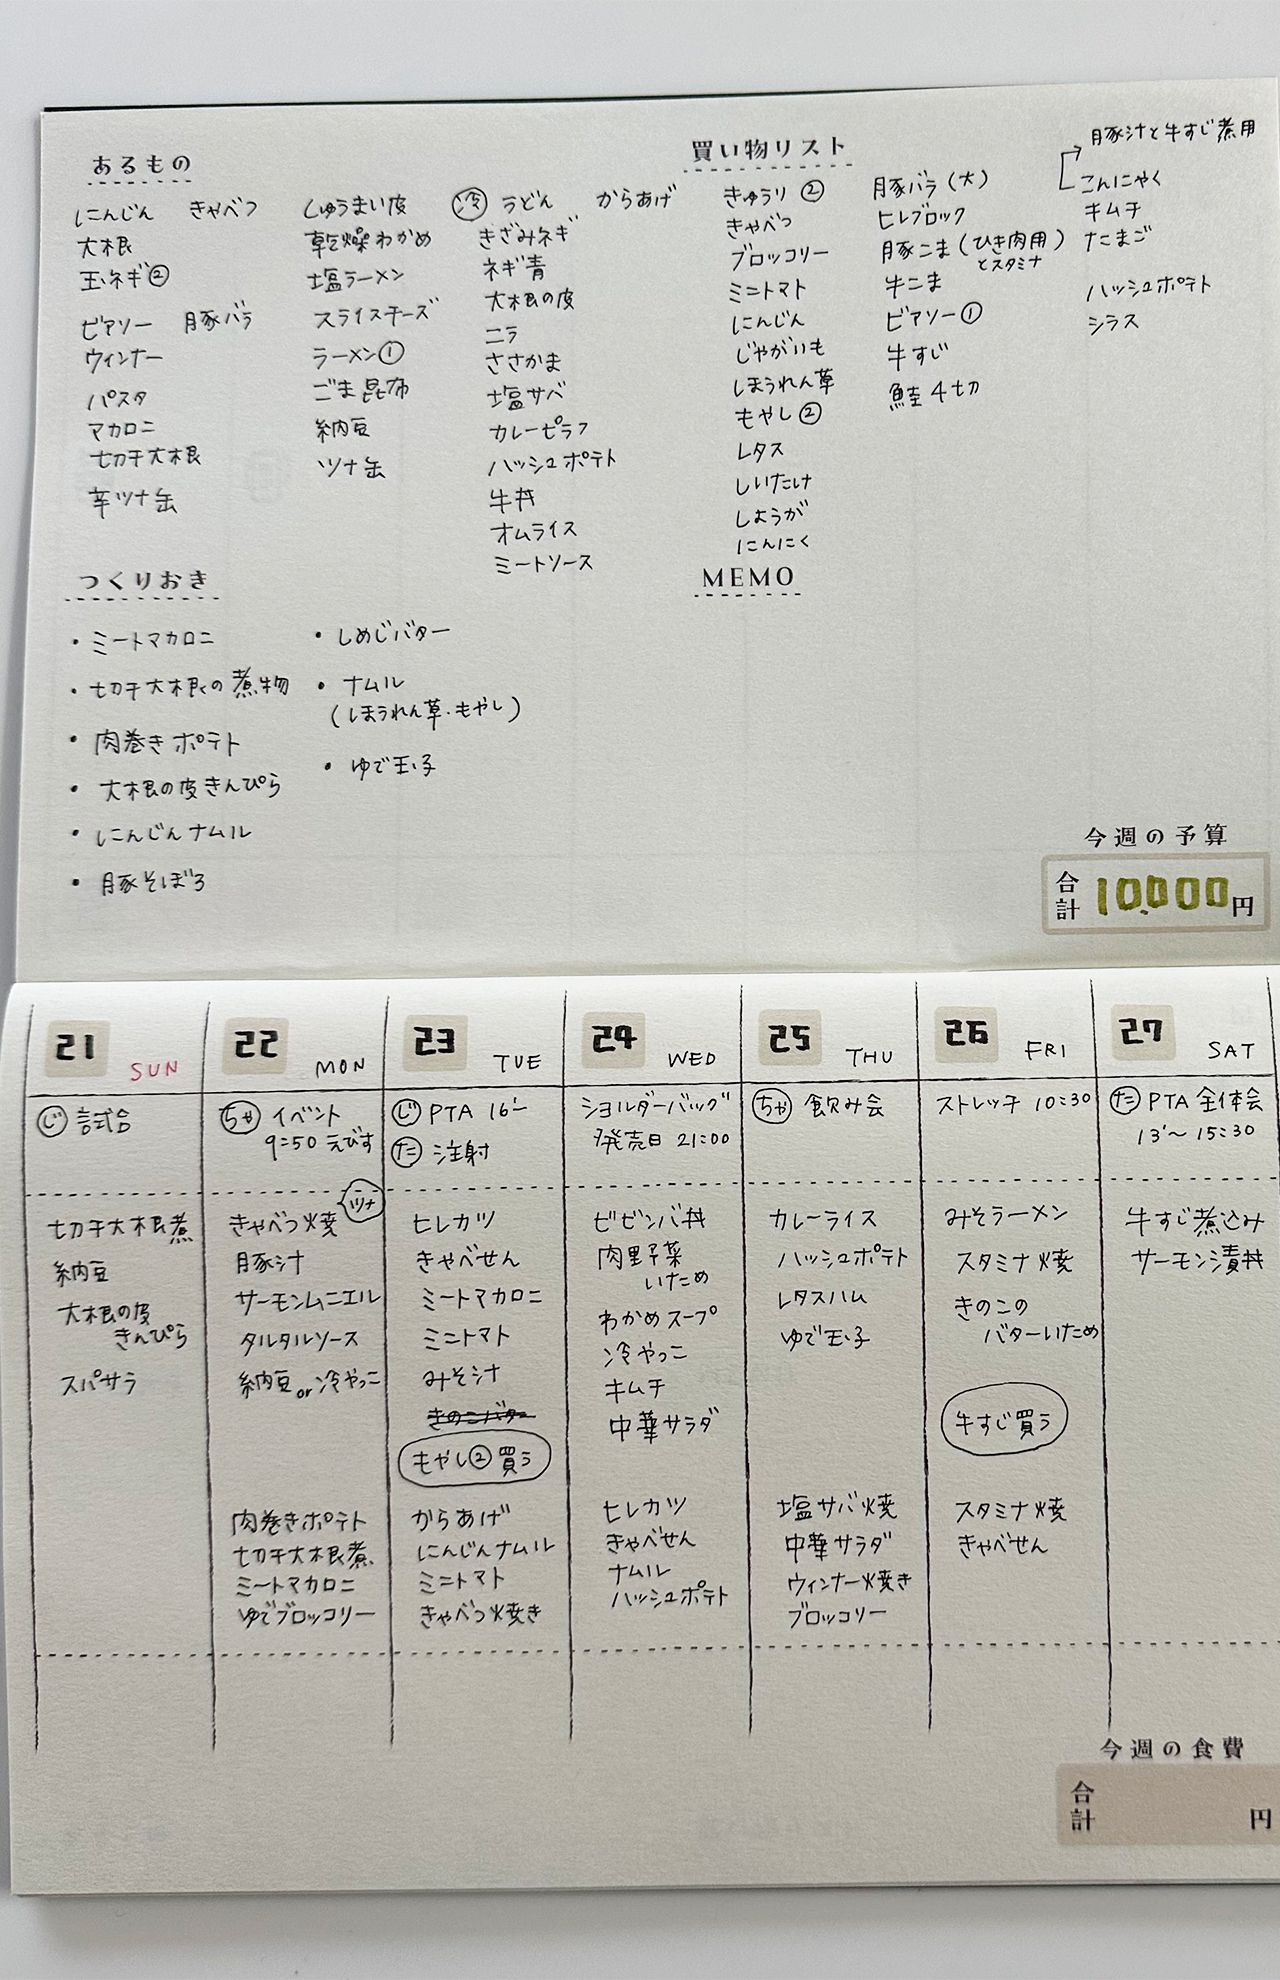 あるもの
にんじん きゃべつ
大根
玉ネギ②
ピアソー 豚バラ
ウィンナー
パスタ
マカロニ
切干大根
辛ツナ缶
しゅうまい皮
乾燥わかめ
塩ラーメン
スライスチーズ
ラーメン①
ごま昆布
納豆
ツナ缶
冷 うどん からあげ
きざみネギ
ネギ青
大根の皮
ニラ
ささかま
塩サバ
カレーピラフ
ハッシュポテト
牛丼
オムライス
ミートソース
買い物リスト
きゅうり②
きゃべつ
ブロッコリー
ミニトマト
にんじん
じゃがいも
ほうれん草
もやし②
レタス
しいたけ
しょうが
にんにく
豚バラ(大)
ヒレブロック
豚こま(ひき肉用)
とスタミナ
牛こま
ピアソー①
牛すじ
鮭4切
豚汁と牛すじ煮用
こんにゃく
キムチ
たまご
ハッシュポテト
シラス
つくりおき
・ミートマカロニ
・切干大根の煮物
・肉巻きポテト
・大根の皮きんぴら
・にんじんナムル
・豚そぼろ
・しめじバター
・ナムル
(ほうれん草・もやし)
・ゆで玉子
MEMO
今週の予算
合計 10,000円
21 SUN
じ 試合
切干大根煮
納豆
大根の皮
きんぴら
スパサラ
22 MON
ちゃ イベント
9:50 えびす
きゃべつ焼 ツナ
豚汁
サーモンムニエル
タルタルソース
納豆or冷やっこ
肉巻きポテト
切干大根煮
ミートマカロニ
ゆでブロッコリー
23 TUE
じ PTA 16'〜
た 注射
ヒレカツ
きゃべせん
ミートマカロニ
ミニトマト
みそ汁
きのこバター
もやし②買う
からあげ
にんじんナムル
ミニトマト
きゃべつ焼き
24 WED
ショルダーバッグ
発売日 21:00
ビビンバ丼
肉野菜
いため
わかめスープ
冷やっこ
キムチ
中華サラダ
ヒレカツ
きゃべせん
ナムル
ハッシュポテト
25 THU
ちゃ 飲み会
カレーライス
ハッシュポテト
レタスハム
ゆで玉子
塩サバ焼
中華サラダ
ウィンナー焼き
ブロッコリー
26 FRI
ストレッチ 10:30
みそラーメン
スタミナ焼
きのこの
バターいため
牛すじ買う
スタミナ焼
きゃべせん
27 SAT
た PTA全体会
13'〜15:30
牛すじ煮込み
サーモン漬丼
今週の食費
合計 円